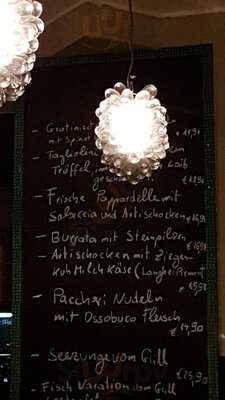 - Gratinie
mit Spinat
€ 11,90
- Tagliolini
Trüffel, im Laib
€ 18,90
- Frische Pappardelle mit
Salsiccia und Artischocken € 16,90
- Burrata mit Steinpilzen
€ 16,90
- Artischocken mit Ziegen
Kuh Milch Käse (Langhe Piemont)
€ 15,90
- Paccheri Nudeln
mit Ossobuco Fleisch
€ 14,90
- Seezunge vom Grill
€ 25,90
- Fisch Variation vom Grill